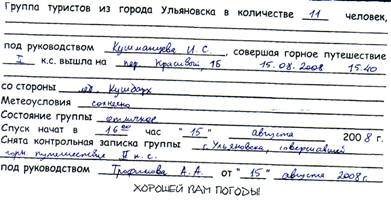 Группа туристов из города Ульяновска в количестве 11 человек,
под руководством Кушманцева И. С., совершая горное путешествие
I к.с. вышла на пер. Красивый, 1Б 15.08.2008 15.40
со стороны
Метеоусловия солнечно
Состояние группы отличное
Спуск начат в 16 00 час "15" августа 2008 г.
Снята контрольная записка группы г. Ульяновска, совершавшей
горн. путешествие II к.с.
под руководством Трофимова А. А. от "15" августа 2008г.
ХОРОШЕЙ ВАМ ПОГОДЫ!